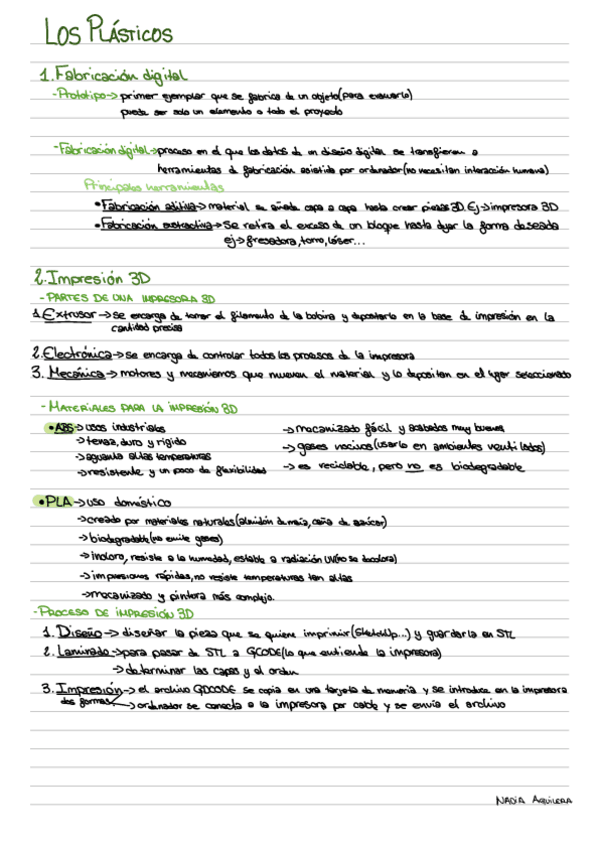 LOS PLÁSTICOS
1. Fabricación digital
- Prototipo → primer ejemplar que se fabrica de un objeto (para evaluarlo)
puede ser solo un elemento o todo el proyecto
- Fabricación digital → proceso en el que los datos de un diseño digital se transfieren a
herramientas de fabricación asistida por ordenador (no necesitan interacción humana)
Principales herramientas
• Fabricación aditiva → material se añade capa a capa hasta crear piezas 3D. Ej → impresora 3D
• Fabricación sustractiva → Se retira el exceso de un bloque hasta dejar la forma deseada
ej → fresadora, torno, láser...
2. Impresión 3D
- PARTES DE UNA IMPRESORA 3D
1. Extrusor → se encarga de tomar el filamento de la bobina y depositarlo en la base de impresión en la
cantidad precisa
2. Electrónica → se encarga de controlar todos los procesos de la impresora
3. Mecánica → motores y mecanismos que mueven el material y lo depositan en el lugar seleccionado
- MATERIALES PARA LA IMPRESIÓN 3D
• ABS → usos industriales → mecanizado fácil y acabados muy buenos
→ tenaz, duro y rígido → gases nocivos (usarlo en ambientes ventilados)
→ aguanta altas temperaturas → es reciclable, pero no es biodegradable
→ resistente y un poco de flexibilidad
• PLA → uso doméstico
→ creado por materiales naturales (almidón de maíz, caña de azúcar)
→ biodegradable (no emite gases)
→ inoloro, resiste a la humedad, estable a radiación UV (no se decolora)
→ impresiones rápidas, no resiste temperaturas tan altas
→ mecanizado y pintura más complejo.
- PROCESO DE IMPRESIÓN 3D
1. Diseño → diseñar la pieza que se quiere imprimir (SketchUp...) y guardarla en STL
2. Laminado → para pasar de STL a GCODE (lo que entiende la impresora)
→ determinar las capas y el orden
3. Impresión → el archivo GDCODE se copia en una tarjeta de memoria y se introduce en la impresora
dos formas → ordenador se conecta a la impresora por cable y se envía el archivo
NADIA AGUILERA